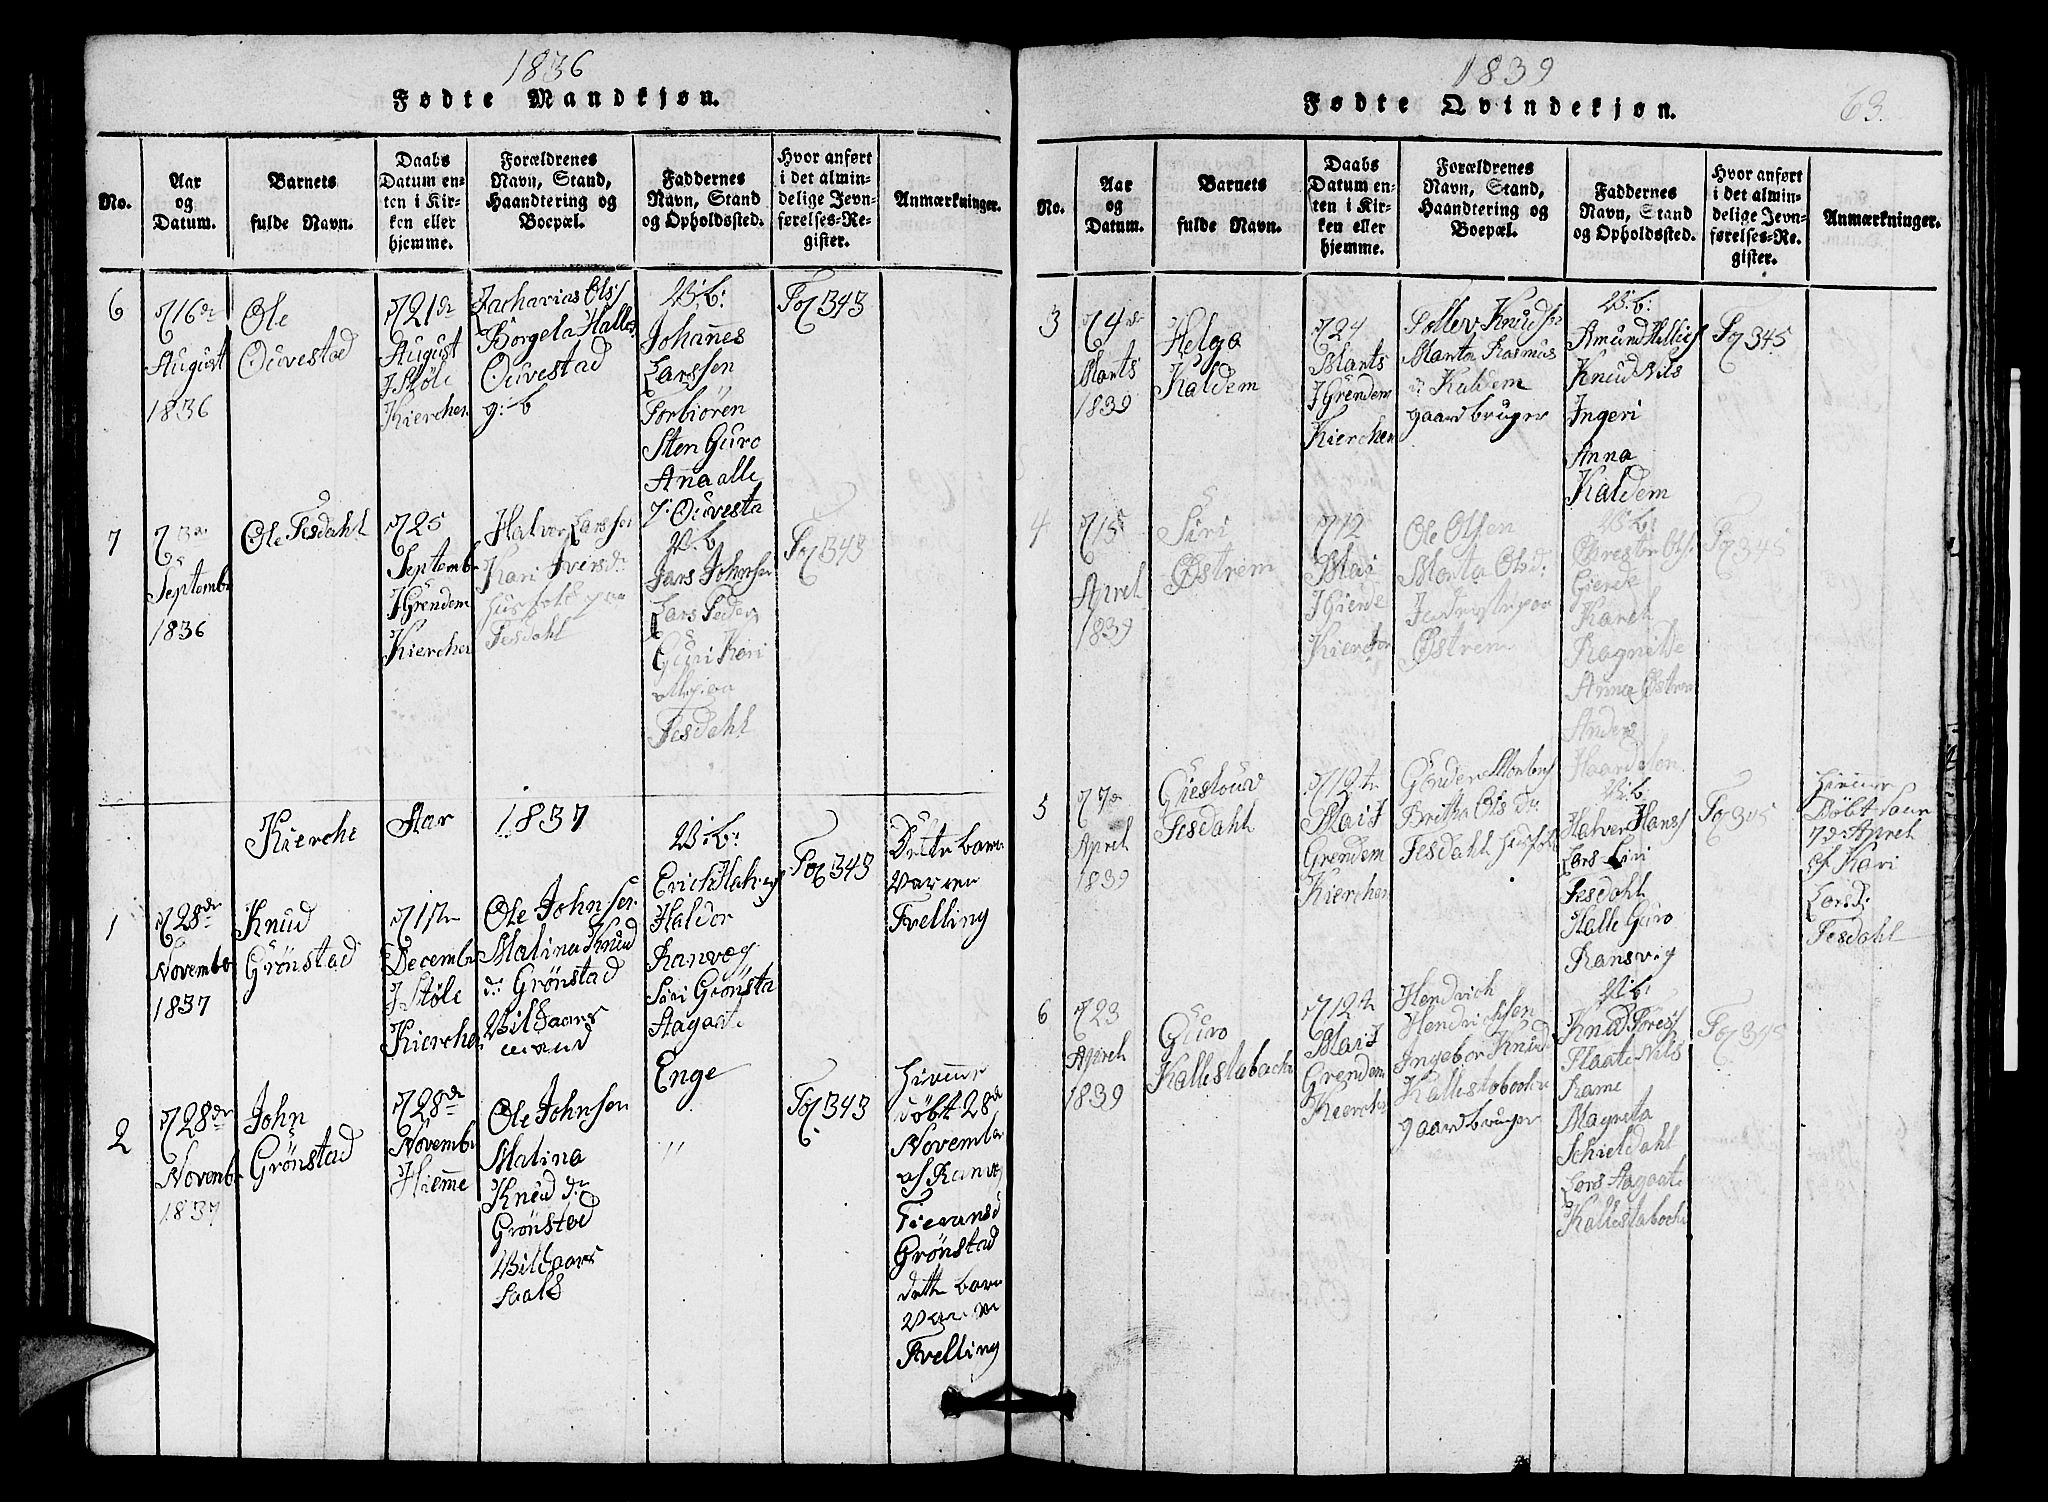 1836
Fødte Mandkjøn.
No.
Aar
og
Datum.
Barnets
fulde Navn.
Daabs
Datum en-
ten i Kir-
ken eller
hjemme.
Forældrenes
Navn, Stand,
Haandtering og
Boepæl.
Faddernes
Navn, Stand
og Opholdssted.
Hvor anført
i det almin-
delige Jevn-
førelses-Re-
gister.
Anmærkninger.
6
16de
August
1836
Ole
Ouvestad
21de
August
I Støle
Kierchen
Zacharias Ols
Borgela Halles
Ouvestad
g: b
W: b:
Johañes
Larssen
Torbiören
Sten Guro
Aña alle
Ouvesta
Fol 343
7
Septembr
1836
Ole Tesdahl
25
Septembr
I Grendem
Kierchen
Halver Larssen
Kari Iversd:
Tesdahl
W: b
Lars Johnsen
Lars Peder
Guri Kari
Tesdahl
Fol 343
Kierche
Aar
1837
1
28de
Novembr
1837
Knud
Grönstad
17de
Decembr
I Støle
Kierchen
Ole Johnsen
Malina Knud
d: Grönstad
W: b:
Erich Halvors
Haldor
Ranveg
Siri Grönsta
Aagaate
Enge
Fol 343
Dette barn
Var en
Tvelling
2
28de
Novemb
1837
John
Grönstad
28de
Novembr
Hiemme
Ole Johnsen
Malina
Knud d:
Grönstad
"
Fol 343
Hiemme
döbt 28d
Novembr
af Ranveg
Grönstad
dette barn
Var en
Tvelling
1839
Fødte Qvindekjøn.
63.
No.
Aar
og
Datum.
Barnets
fulde Navn.
Daabs
Datum en-
ten i Kir-
ken eller
hjemme.
Forældrenes
Navn, Stand,
Haandtering og
Boepæl.
Faddernes
Navn, Stand
og Opholdssted.
Hvor anført
i det almin-
delige Jevn-
førelses-Re-
gister.
Anmærkninger.
3
4de
Marts
1839
Helga
Kaldem
24
Marts
I Grendem
Kierchen
Tollev Knuds
Marta Rasmus
d: Kaldem
gaardbruger
W: b:
Amund
Knud Nils
Ingeri
Anna
Kaldem
Fol 345
4
15
Aprel
1839
Siri
Østrem
12
Mai
I Gierde
Kierchen
Ole Olsen
Marta Olsd:
Østrem
W: b:
Chrester Ols
Gierde
Karel
Ragnilde
Anna Østrem
Anders
Fol 345
5
7de
Aprel
1839
Giestouv
Tesdahl
12te
Mai I
Grendem
Kierchen
Gonder
Britha Ols d:
Tesdahl
W: b
Halver Hans
Lars Siri
Tesdahl
Halle Guro
Ransvig
Fol 345
Hiemme
Döbt
7d: Aprel
af Kari
Larsd:
Tesdahl
6
23
Aprel
1839
Guro
Kallestabach
12te
Mai I
Grendem
Kierchen
Hendrich
Hendrichsen
Ingebor Knud
Kallestabach
gaardbruger
W: b:
Knud Tores
Flaate Nils
Rame
Magreta
Schieldahl
Lars Aagaate
Kallestabach
Fol 345